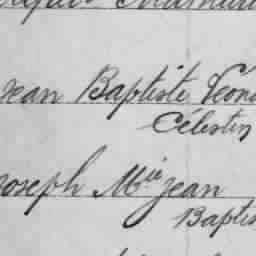 Jean Baptiste Léon
Célestin
Joseph Mie Jean
Baptis